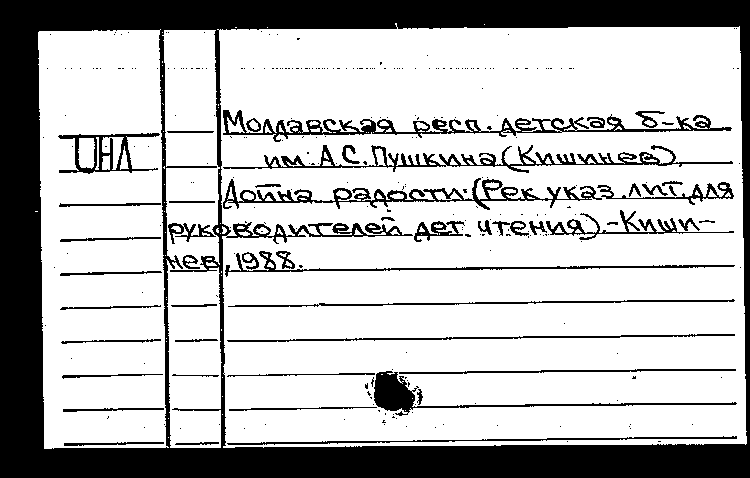 Молдавская респ. детская б-ка
ЦНЛ
им. А.С. Пушкина (Кишинев).
Дойна радости. (Рек указ. лит. для
руководителей дет. чтения). - Киши-
нев, 1988.